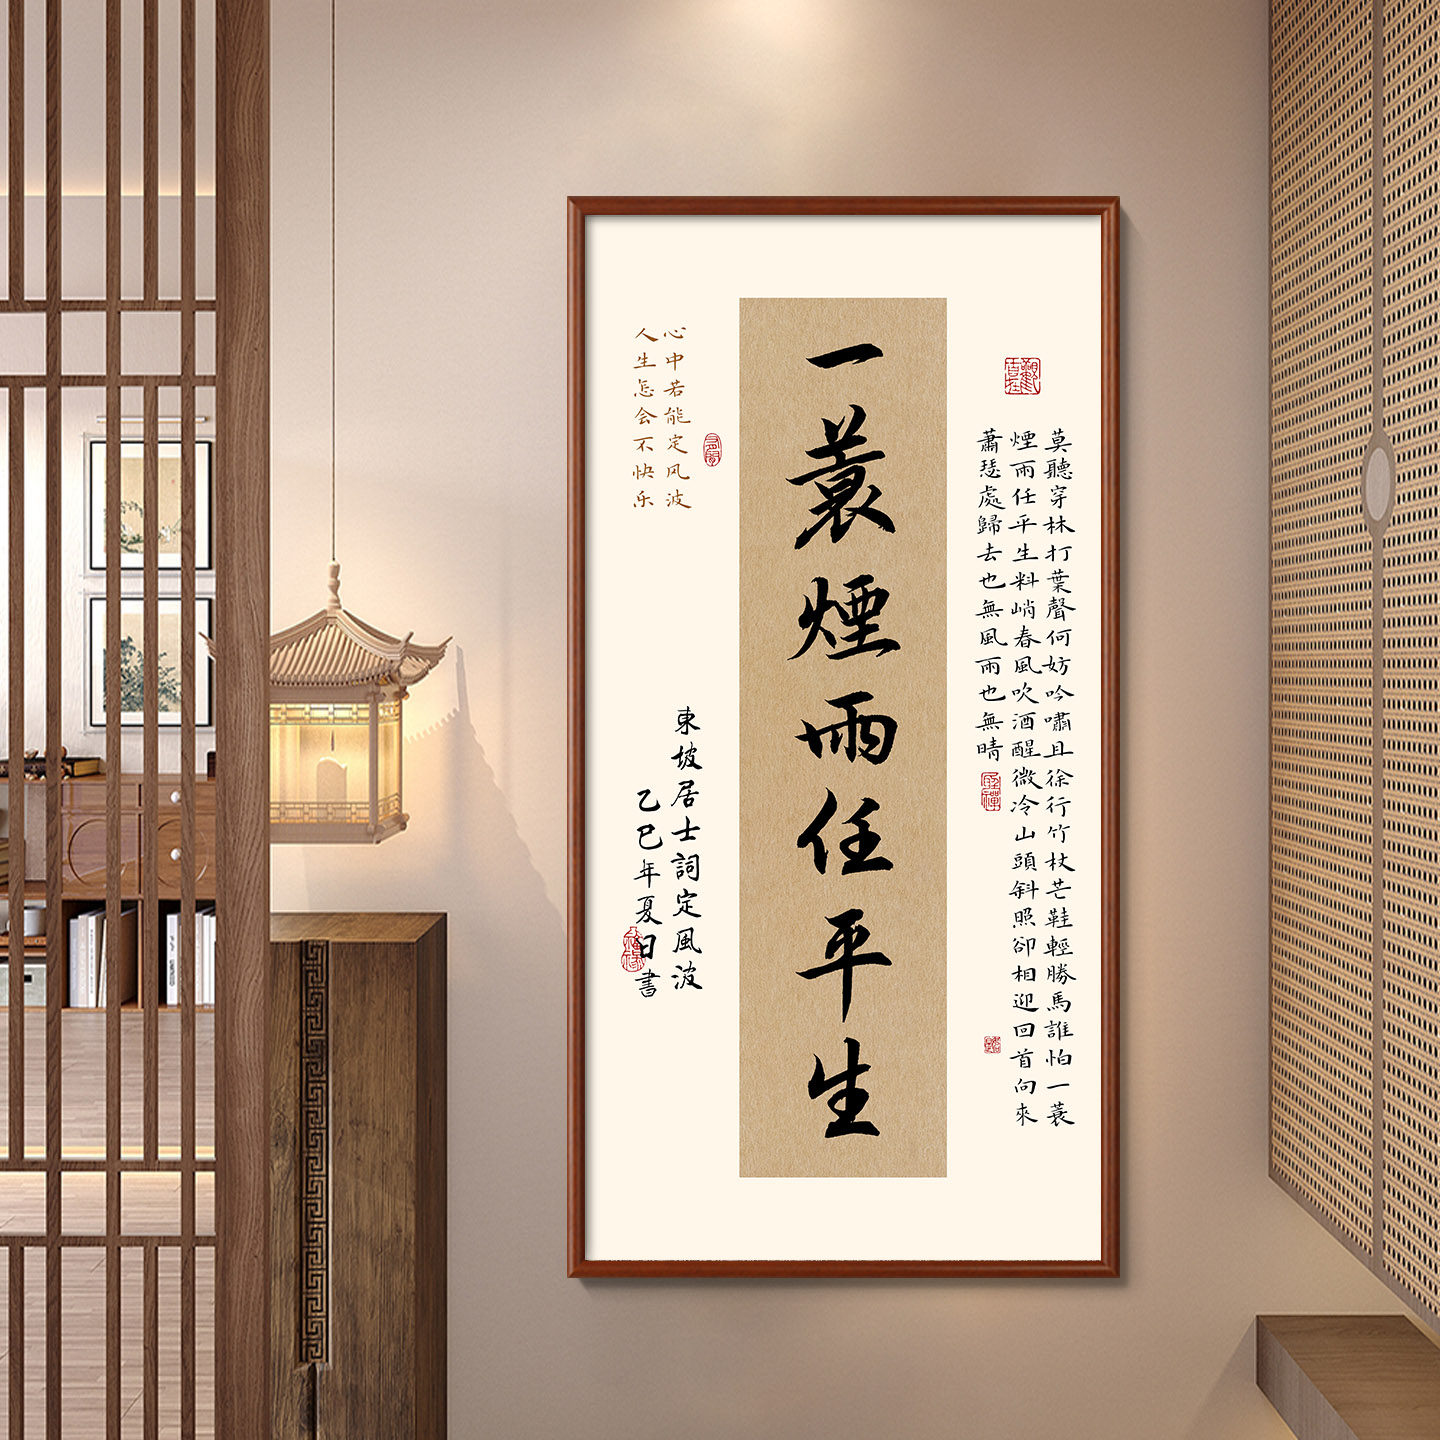 莫聽穿林打葉聲何妨吟嘯且徐行竹杖芒鞋輕勝馬誰怕一蓑
煙雨任平生料峭春風吹酒醒微冷山頭斜照卻相迎回首向來
蕭瑟處歸去也無風雨也無晴
一蓑煙雨任平生
心中若能定风波
人生怎会不快乐
東坡居士詞定風波
乙巳年夏日書